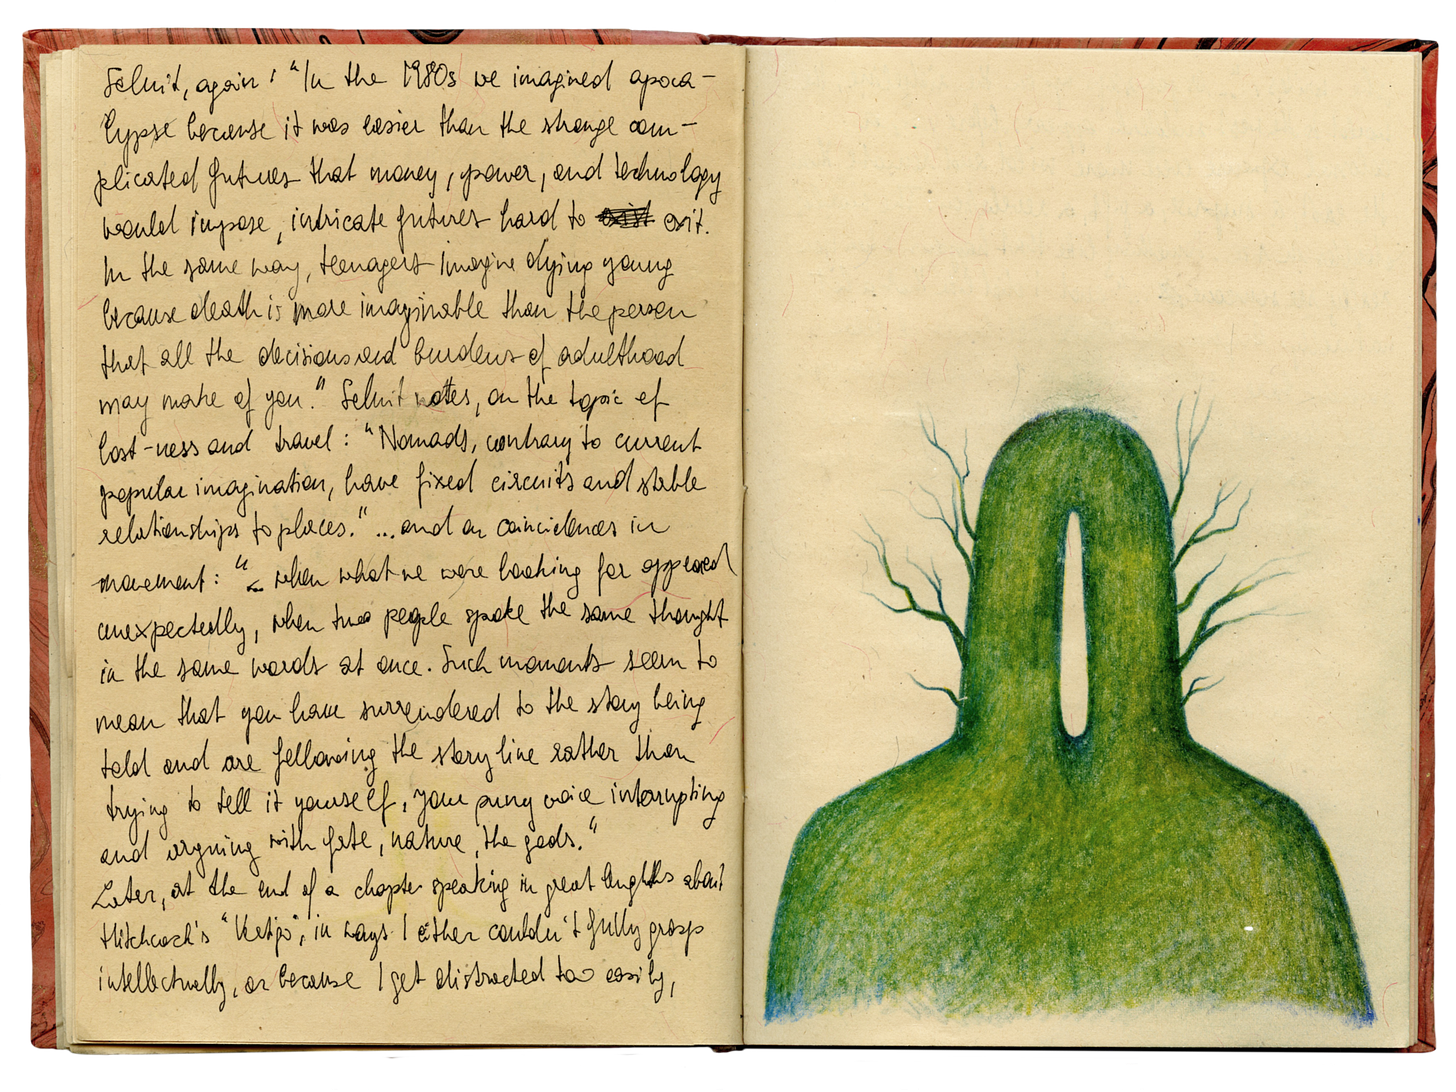 Solnit, again: "In the 1980s we imagined apoca-
lypse because it was easier than the strange com-
plicated futures that money, power, and technology
would impose, intricate futures hard to exit.
In the same way, teenagers imagine dying young
because death is more imaginable than the person
that all the decisions and burdens of adulthood
may make of you." Solnit notes, on the topic of
lost-ness and travel: "Nomads, contrary to current
popular imagination, have fixed circuits and stable
relationships to places." ...and on coincidences in
movement: "... when what we were looking for appeared
unexpectedly, when two people spoke the same thought
in the same words at once. Such moments seem to
mean that you have surrendered to the story being
told and are following the story line rather than
trying to tell it yourself, your puny voice interrupting
and arguing with fate, nature, the gods."
Later, at the end of a chapter speaking in great lenghths about
Hitchcock's "Vertigo", in ways I either couldn't fully grasp
intellectually, or because I get distracted too easily,